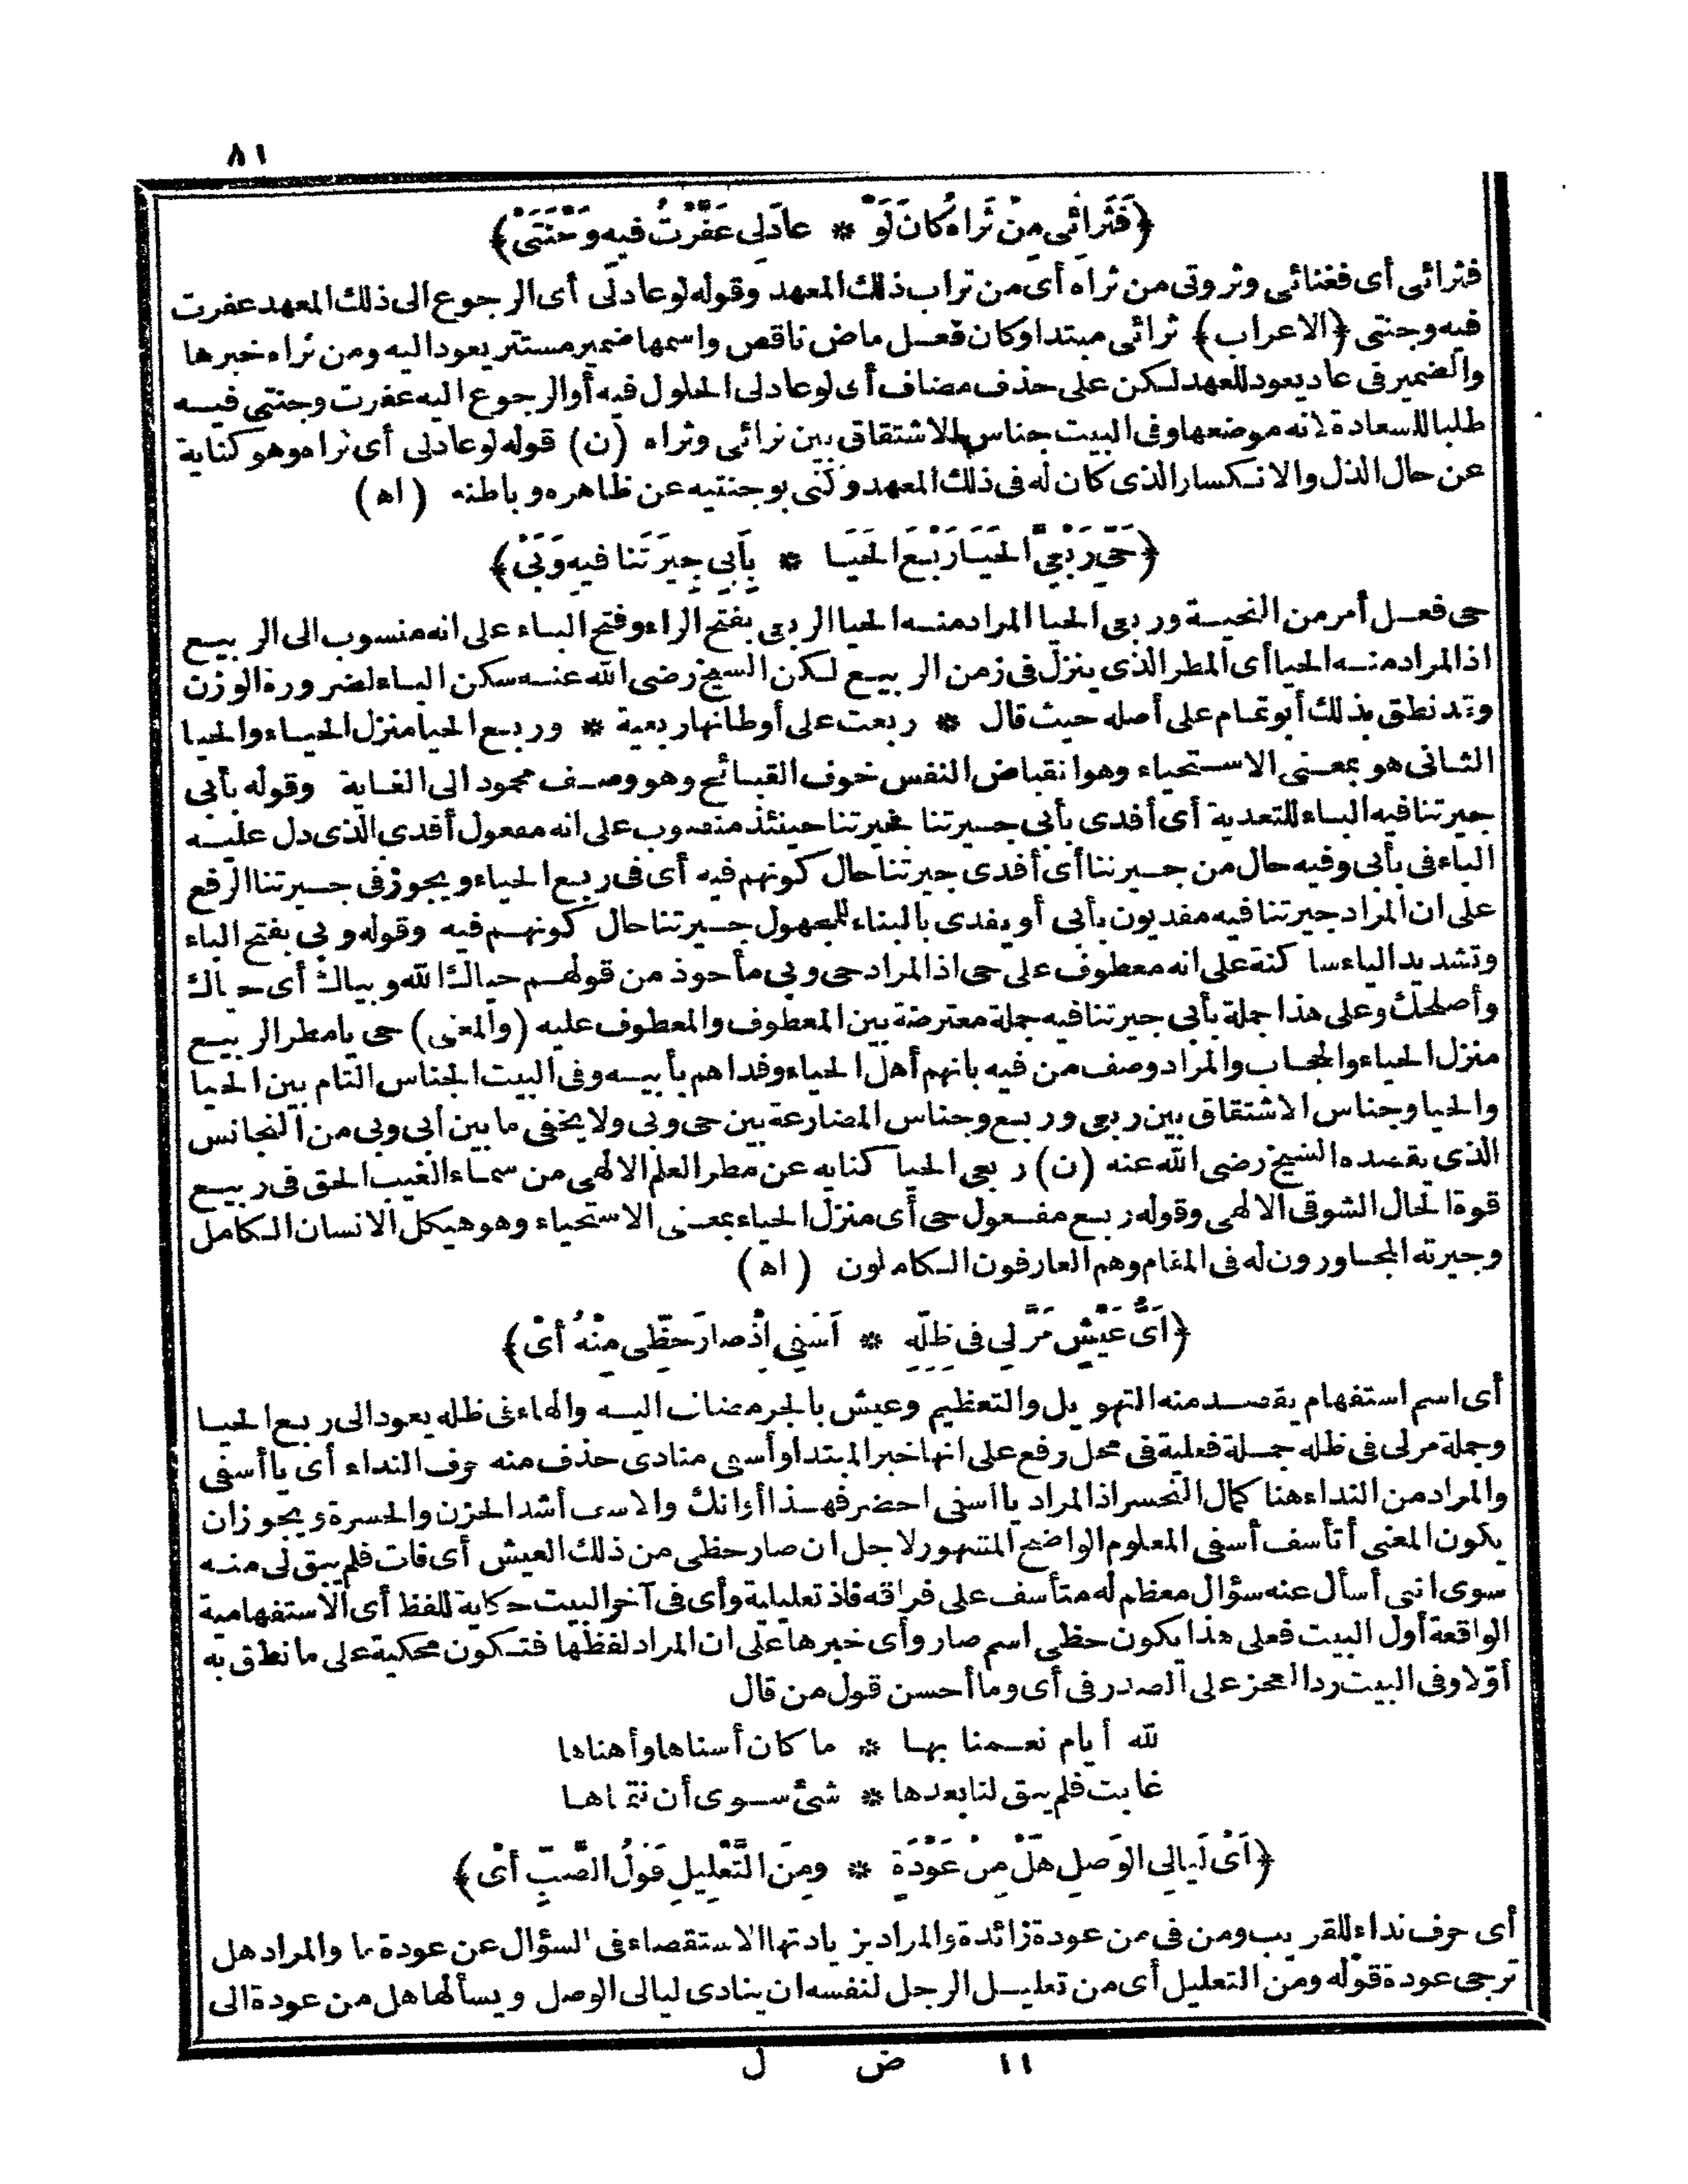 ٨١
﴿فَثَرائي مِنْ ثَراهُ كانَ لَوْ * عادَلي عَفَّرْتُ فيهِ وَجْنَتَيْ﴾
فثرائى أى فغنائى وثروتى من ثراه أى من تراب ذلك المعهد وقوله لو عاد لى أى الرجوع الى ذلك المعهد عفرت
فيه وجنتى ﴿الاعراب﴾ ثرائى مبتدا وكان فعل ماض ناقص واسمها ضمير مستتر يعود اليه ومن ثراه خبرها
والضمير فى عاد يعود للعهد لكن على حذف مضاف أى لو عاد لى الحلول فيه أو الرجوع اليه عفرت وجنتى فيه
طلبا للسعادة لانه موضعها وفى البيت جناس الاشتقاق بين ثرائى وثراه (ن) قوله لو عاد لى أى ثراه وهو كناية
عن حال الذل والانكسار الذى كان له فى ذلك المعهد وكنى بوجنتيه عن ظاهره وباطنه (اه)
﴿حَيِّ رَبْعِيَّ الحَيَا رَبْعَ الحَيَا * بِأَبِي جِيرَتَنا فيهِ وَبَيْ﴾
حى فعل أمر من التحية وربعى الحيا المراد منه الحيا الربعى بفتح الراء وفتح الباء على انه منسوب الى الربيع
اذ المراد منه الحيا أى المطر الذى ينزل فى زمن الربيع لكن الشيخ رضى الله عنه سكن الباء لضرورة الوزن
وقد نطق بذلك أبو تمام على أصله حيث قال * ربعت على أوطانها ربعية * وربع الحيا منزل الحياء والحيا
الثانى هو بمعنى الاستحياء وهو انقباض النفس خوف القبائح وهو وصف محمود الى الغاية وقوله بأبى
جيرتنا فيه الباء للتعدية أى أفدى بأبى جيرتنا فجيرتنا حينئذ منصوب على انه مفعول أفدى الذى دل عليه
الباء فى بأبى وفيه حال من جيرتنا أى أفدى جيرتنا حال كونهم فيه أى فى ربع الحياء ويجوز فى جيرتنا الرفع
على ان المراد جيرتنا فيه مفديون بأبى أو يفدى بالبناء للمجهول جيرتنا حال كونهم فيه وقوله وبى بفتح الباء
وتشديد الياء ساكنة على انه معطوف على حى اذ المراد حى وبى مأخوذ من قولهم حياك الله وبياك أى حياك
وأصلحك وعلى هذا جملة بأبى جيرتنا فيه جملة معترضة بين المعطوف والمعطوف عليه (والمعنى) حى يا مطر الربيع
منزل الحياء والحجاب والمراد وصف من فيه بانهم أهل الحياء وفداهم بأبيه وفى البيت الجناس التام بين الحيا
والحيا وجناس الاشتقاق بين ربعى وربع وجناس المضارعة بين حى وبى ولا يخفى ما بين أبى وبى من التجانس
الذى يقصده الشيخ رضى الله عنه (ن) ربعى الحيا كناية عن مطر العلم الالهى من سماء الغيب الحق فى ربيع
قوة الحال الشوقى الالهى وقوله ربع مفعول حى أى منزل الحياء بمعنى الاستحياء وهو هيكل الانسان الكامل
وجيرته المجاورون له فى المقام وهم العارفون الكاملون (اه)
﴿أَىُّ عَيْشٍ مَرَّ لِي فى ظِلِّهِ * أَسَفِي إِذْ صارَ حَظِّى مِنْهُ أَىْ﴾
أى اسم استفهام يقصد منه التهويل والتعظيم وعيش بالجر مضاف اليه والهاء فى ظله يعود الى ربع الحيا
وجملة مر لى فى ظله جملة فعلية فى محل رفع على انها خبر المبتدا وأسفى منادى حذف منه حرف النداء أى يا أسفى
والمراد من النداء هنا كمال التحسر اذ المراد يا أسفى احضر فهذا أوانك والاسى أشد الحزن والحسرة ويجوز ان
يكون المعنى أتأسف أسفى المعلوم الواضح المشهور لاجل ان صار حظى من ذلك العيش أى فات فلم يبق لى منه
سوى انى أسأل عنه سؤال معظم له متأسف على فراقه فاذ تعليلية وأى فى آخر البيت حكاية للفظ أى الاستفهامية
الواقعة أول البيت فعلى هذا يكون حظى اسم صار وأى خبرها على ان المراد لفظها فتكون محكية على ما نطق به
أوّلا وفى البيت رد العجز على الصدر فى أى وما أحسن قول من قال
لله أيام نعمنا بها * ما كان أسناها وأهناها
غابت فلم يبق لنا بعدها * شئ سوى أن نتمناها
﴿أَىْ لَيالِى الوَصْلِ هَلْ مِنْ عَوْدَةٍ * ومِنَ التَّعْلِيلِ قَوْلُ الصَّبِّ أَىْ﴾
أى حرف نداء للقريب ومن فى من عودة زائدة والمراد بزيادتها الاستقصاء فى السؤال عن عودة ما والمراد هل
ترجى عودة قوله ومن التعليل أى من تعليل الرجل لنفسه ان ينادى ليالى الوصل ويسألها هل من عودة الى
١١ ض ل